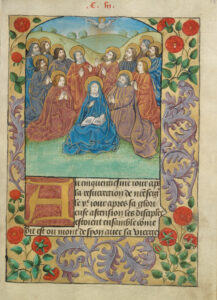 Au cinquentiesme iour apres
la resurection de nre seigr
iour apres sa glori
euse ascension les disciples
estoient ensamble come
dit est ou mont de syon auec la vierge